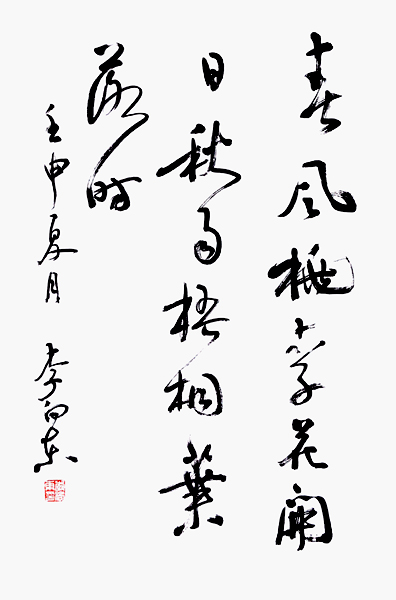 春风桃李花开
日秋雨梧桐叶
落时
壬申夏月
李向东